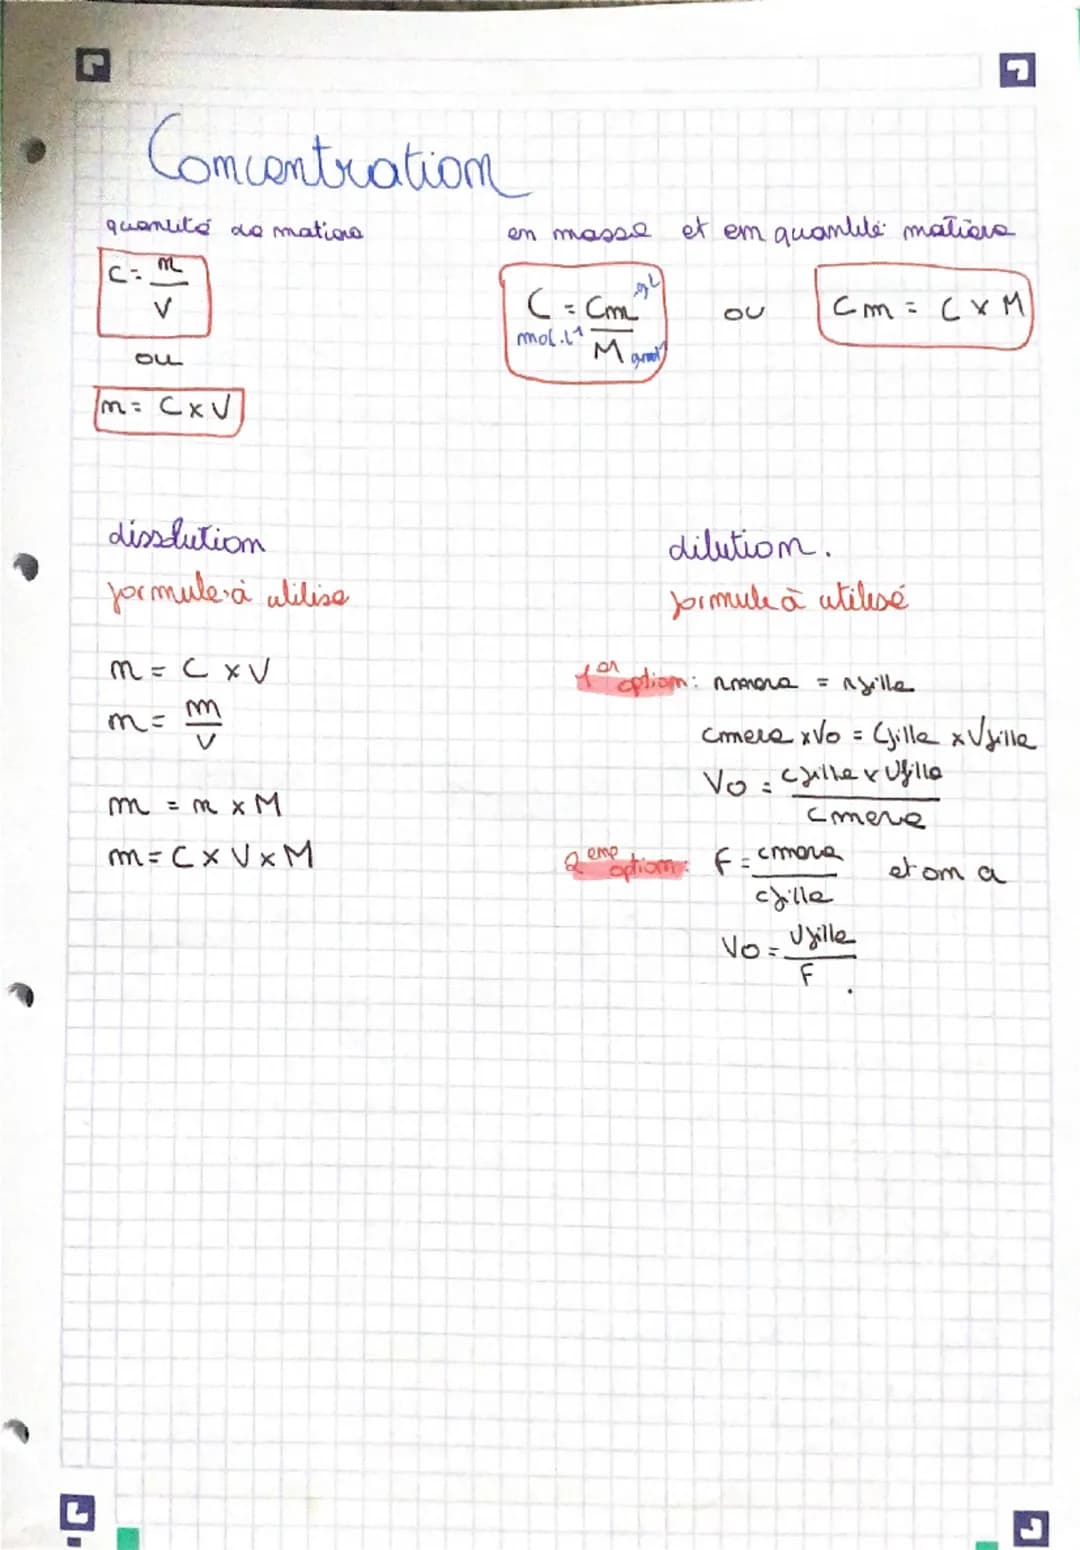 Concentration
quantité de matière
C = n / V
ou
n = C x V
en masse et en quantité matière
C = Cm / M
mol.L⁻¹
ou
Cm = C x M
dissolution
formule à utilise
n = C x V
n = m / V
m = n x M
m = C x V x M
dilution.
formule à utilisé
1er option : nmere = nfille
Cmere x Vo = Cfille x Vfille
Vo = Cfille x Vfille / Cmere
2eme option : F = cmere / cfille et on a
Vo = Vfille / F .